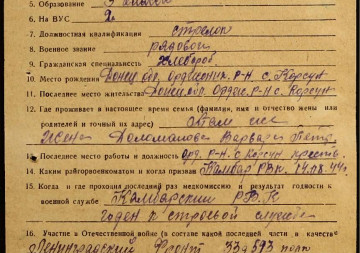 5. Образование 3 класса
6. На ВУС 2.
7. Должностная квалификация стрелок
8. Военное звание рядовой
9. Гражданская специальность хлебороб
10. Место рождения обл. Орджоник. р-н. с. Корсун
11. Последнее место жительства Орджо. р-н с. Корсун
12. Где проживает в настоящее время семья (фамилия, имя и отчество жены или
родителей и точный их адрес) там же
жена Варвара Петр.
13. Последнее место работы и должность Орд. р-н с. Корсун
14. Каким райгорвоенкоматом и когда призван РВК. 14.08.44г.
15. Когда и где проходил последний раз медкомиссию и результат годности к
военной службе РВК
годен к строевой службе
16. Участие в Отечественной войне (в составе какой последней части, в качестве
Ленинградский Фронт 33д 593 полк